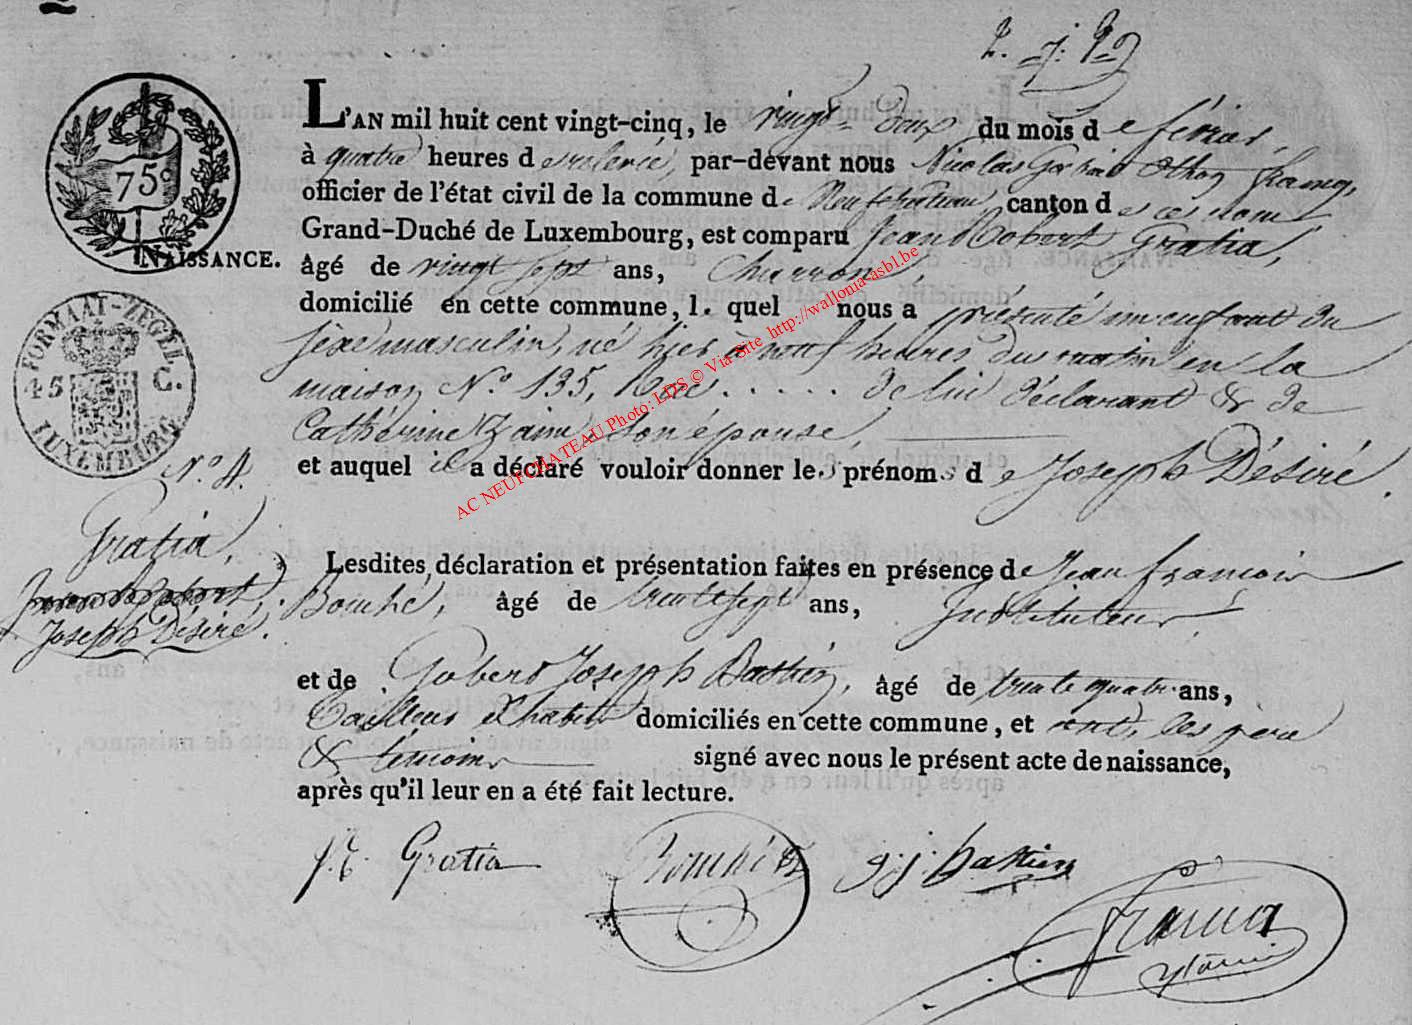 75c
NAISSANCE.
FORMAAT-ZEGEL
45 C.
LUXEMBURG
N.° 4.
Gratia,
Joseph Désiré.
L'AN mil huit cent vingt-cinq, le vingt-deux du mois de février,
à quatre heures de relevée, par-devant nous Nicolas
officier de l'état civil de la commune de Neufchateau, canton de ce nom
Grand-Duché de Luxembourg, est comparu Jean Robert Gratia,
âgé de vingt sept ans, Charron,
domicilié en cette commune, le quel nous a présenté un enfant du
sexe masculin, né hier à neuf heures du matin en la
maison N° 135, de lui déclarant & de
Cathérine son épouse,
et auquel il a déclaré vouloir donner les prénoms de Joseph Désiré.
Lesdites déclaration et présentation faites en présence de Jean françois
Bouché, âgé de trente sept ans, Instituteur,
et de Gobert Joseph Bastien, âgé de trente quatre ans,
Tailleur d'habits domiciliés en cette commune, et ont, les père
& témoins signé avec nous le présent acte de naissance,
après qu'il leur en a été fait lecture.
J. R. Gratia
Bouché
g. j. bastien
AC NEUFCHATEAU Photo: LDS © Via Site http://wallonia-asbl.be